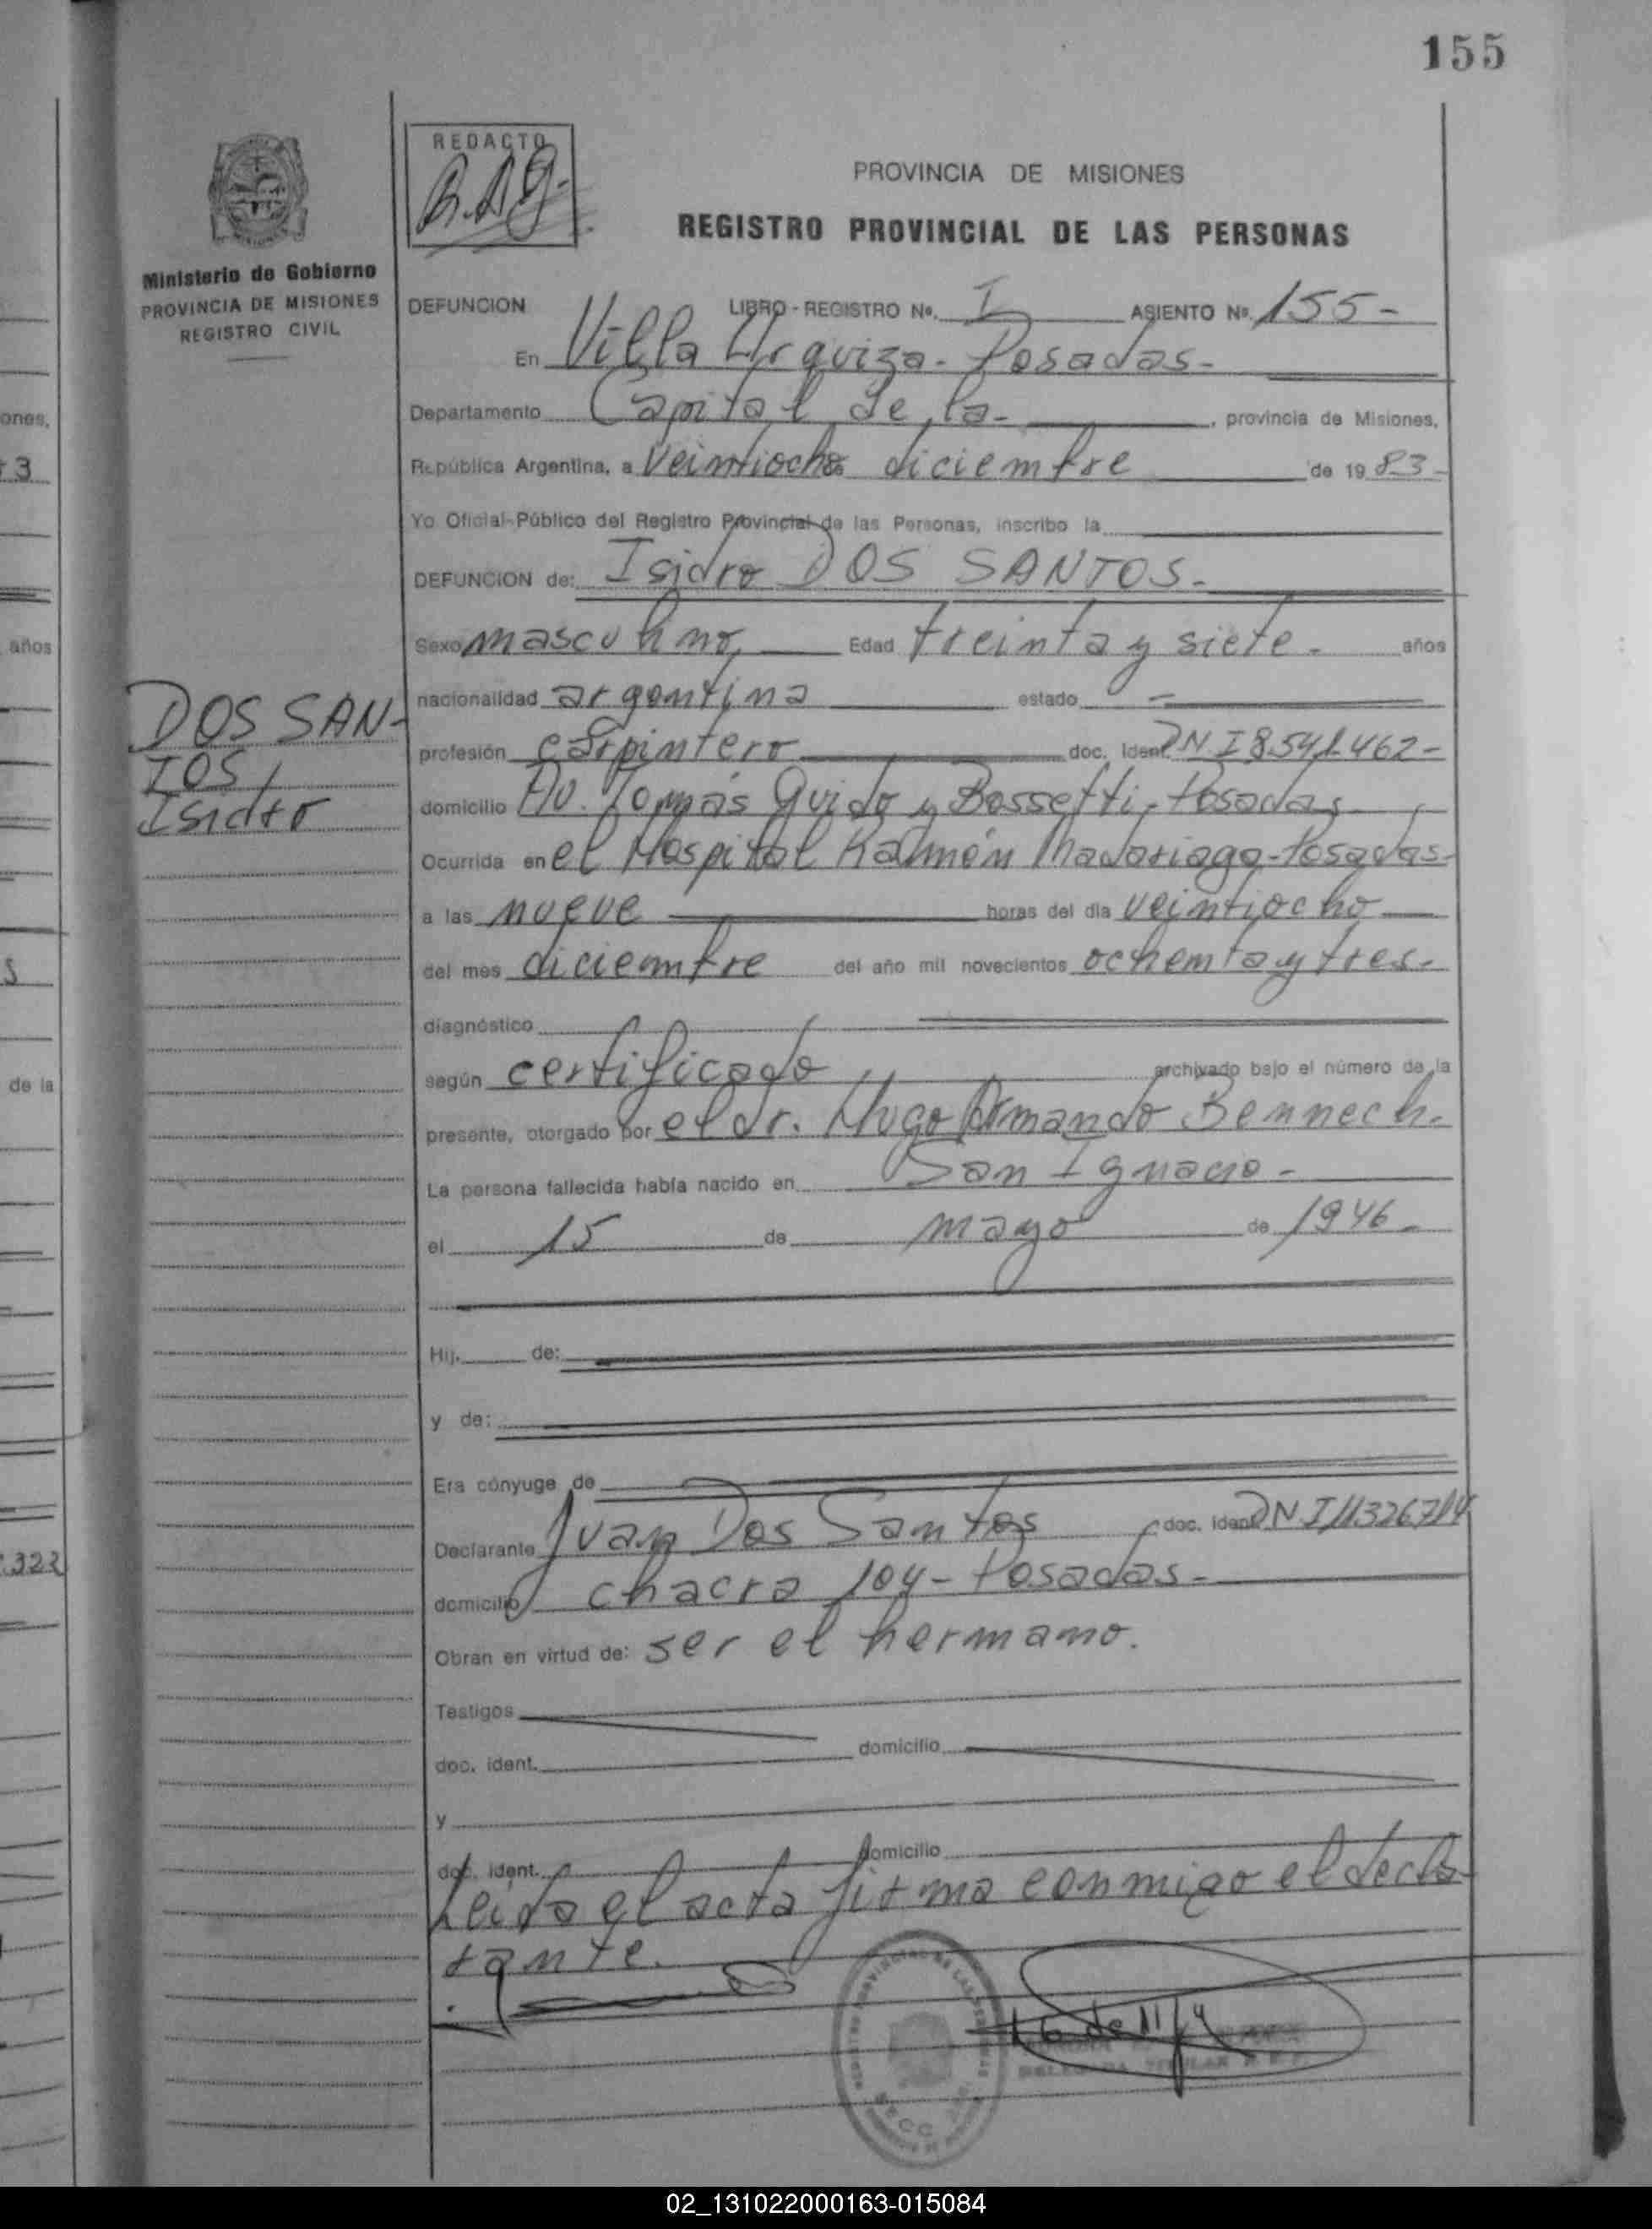 155
REDACTO
PROVINCIA DE MISIONES
REGISTRO PROVINCIAL DE LAS PERSONAS
Ministerio de Gobierno
PROVINCIA DE MISIONES
REGISTRO CIVIL
DEFUNCION LIBRO - REGISTRO No. I ASIENTO No. 155-
En Villa Urquiza - Posadas-
Departamento Capital de la- , provincia de Misiones,
República Argentina, a veintiocho diciembre de 1983-
Yo Oficial Público del Registro Provincial de las Personas, inscribo la
DEFUNCION de: Isidro DOS SANTOS-
Sexo masculino, Edad treinta y siete- años
nacionalidad argentina estado -
DOS SAN-
TOS,
Isidro
profesión carpintero doc. Ident. DNI 8.541.462-
domicilio Av. Tomás Guido y Bossetti, Posadas
Ocurrida en el Hospital Ramón Madariaga-Posadas-
a las nueve horas del día veintiocho
del mes diciembre del año mil novecientos ochenta y tres-
diagnóstico
según certificado archivado bajo el número de la
presente, otorgado por el dr. Hugo Armando Bennech.
La persona fallecida había nacido en San Ignacio-
el 15 de mayo de 1946-
Hij. de:
y de:
Era cónyuge de
Declarante Juan Dos Santos doc. Ident. DNI 11326714
domicilio chacra 104- Posadas-
Obran en virtud de: ser el hermano.
Testigos
doc. ident. domicilio
y
doc. ident. domicilio
Leída el acta firma conmigo el decla-
rante.
02_131022000163-015084